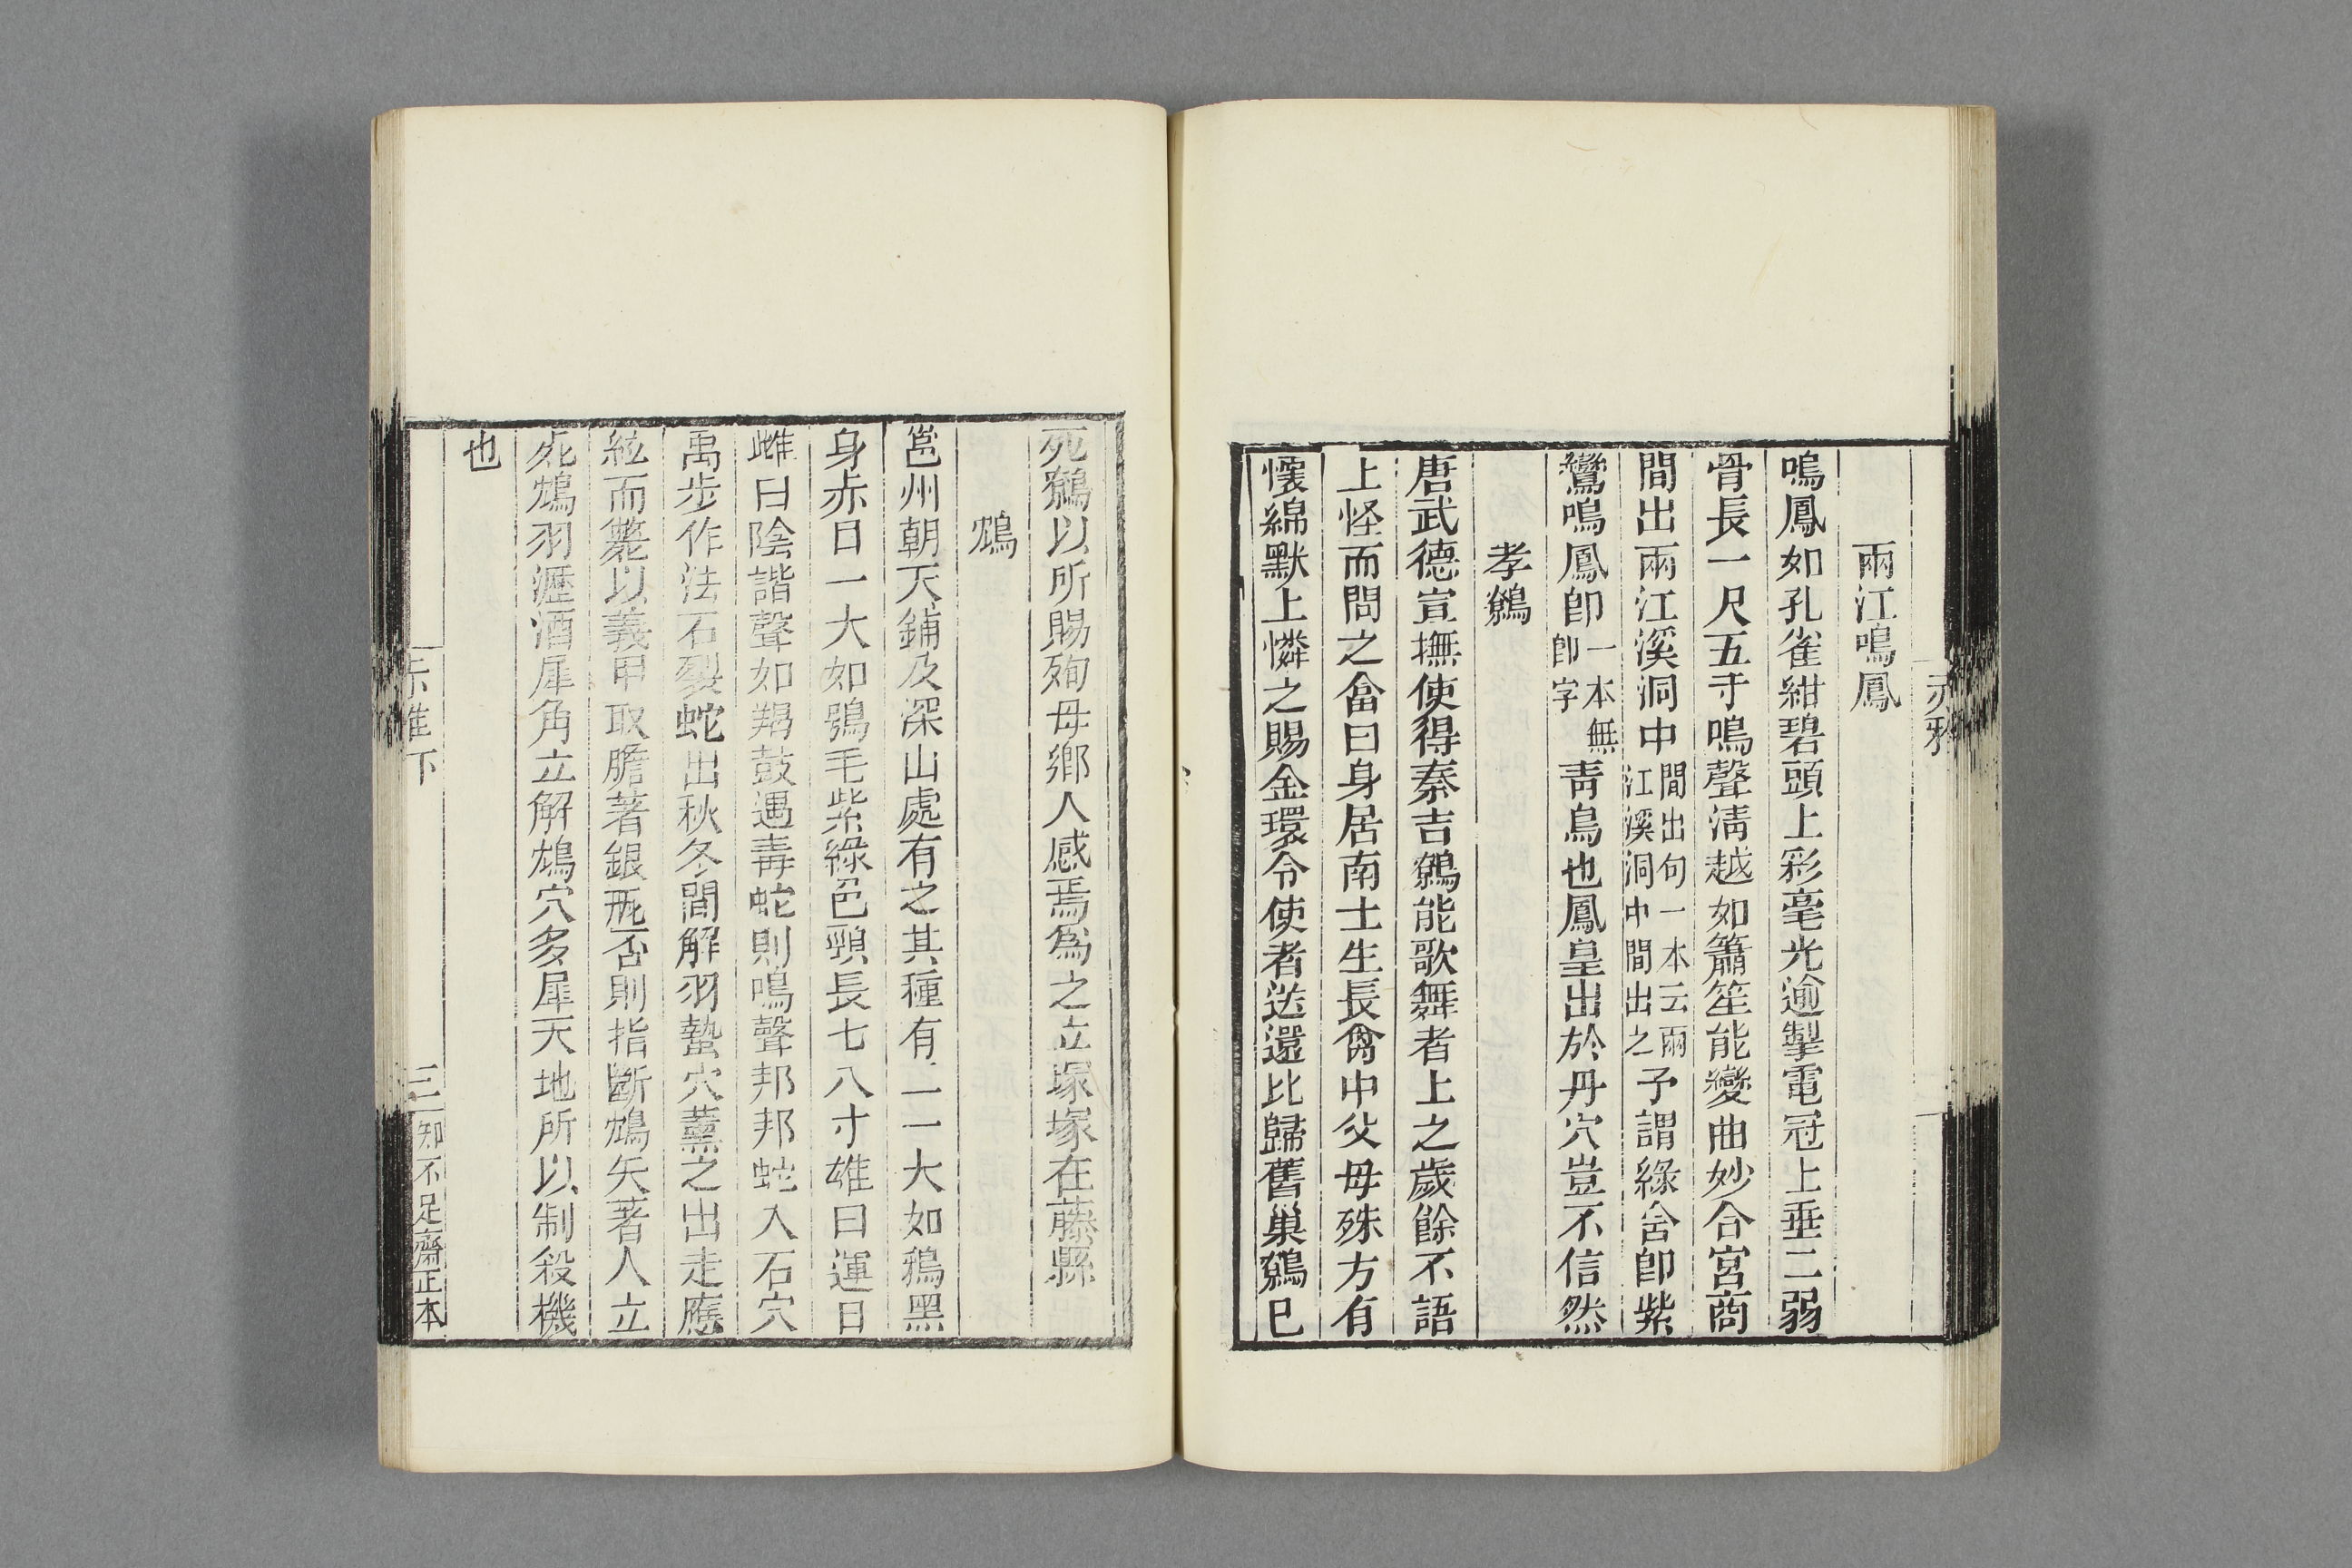 赤雅
兩江鳴鳳
鳴鳳如孔雀紺碧頭上彩毫光逾掣電冠上垂二弱
骨長一尺五寸鳴聲淸越如簫笙能變曲妙合宮商
間出兩江溪洞中間出句一本云兩江溪洞中間出之予謂綠舍卽紫
鸞鳴鳳卽一本無卽字靑鳥也鳳皇出於丹穴豈不信然
孝鷯
唐武德宣撫使得秦吉鷯能歌舞者上之歲餘不語
上怪而問之畣曰身居南士生長禽中父母殊方有
懷綿默上憐之賜金環令使者送還比歸舊巢鷯巳
死鷯以所賜殉母鄉人感焉爲之立塚塚在藤縣
鴆
邕州朝天鋪及深山處有之其種有二一大如鴉黑
身赤目一大如鴞毛紫綠色頸長七八寸雄曰運日
雌曰陰諧聲如羯鼓遇毒蛇則鳴聲邦邦蛇入石穴
禹步作法石裂蛇出秋冬間解羽蟄穴薰之出走應
絃而斃以義甲取膽著銀瓶否則指斷鴆矢著人立
死鴆羽瀝酒犀角立解鴆穴多犀天地所以制殺機
也
赤雅下
三
知不足齋正本